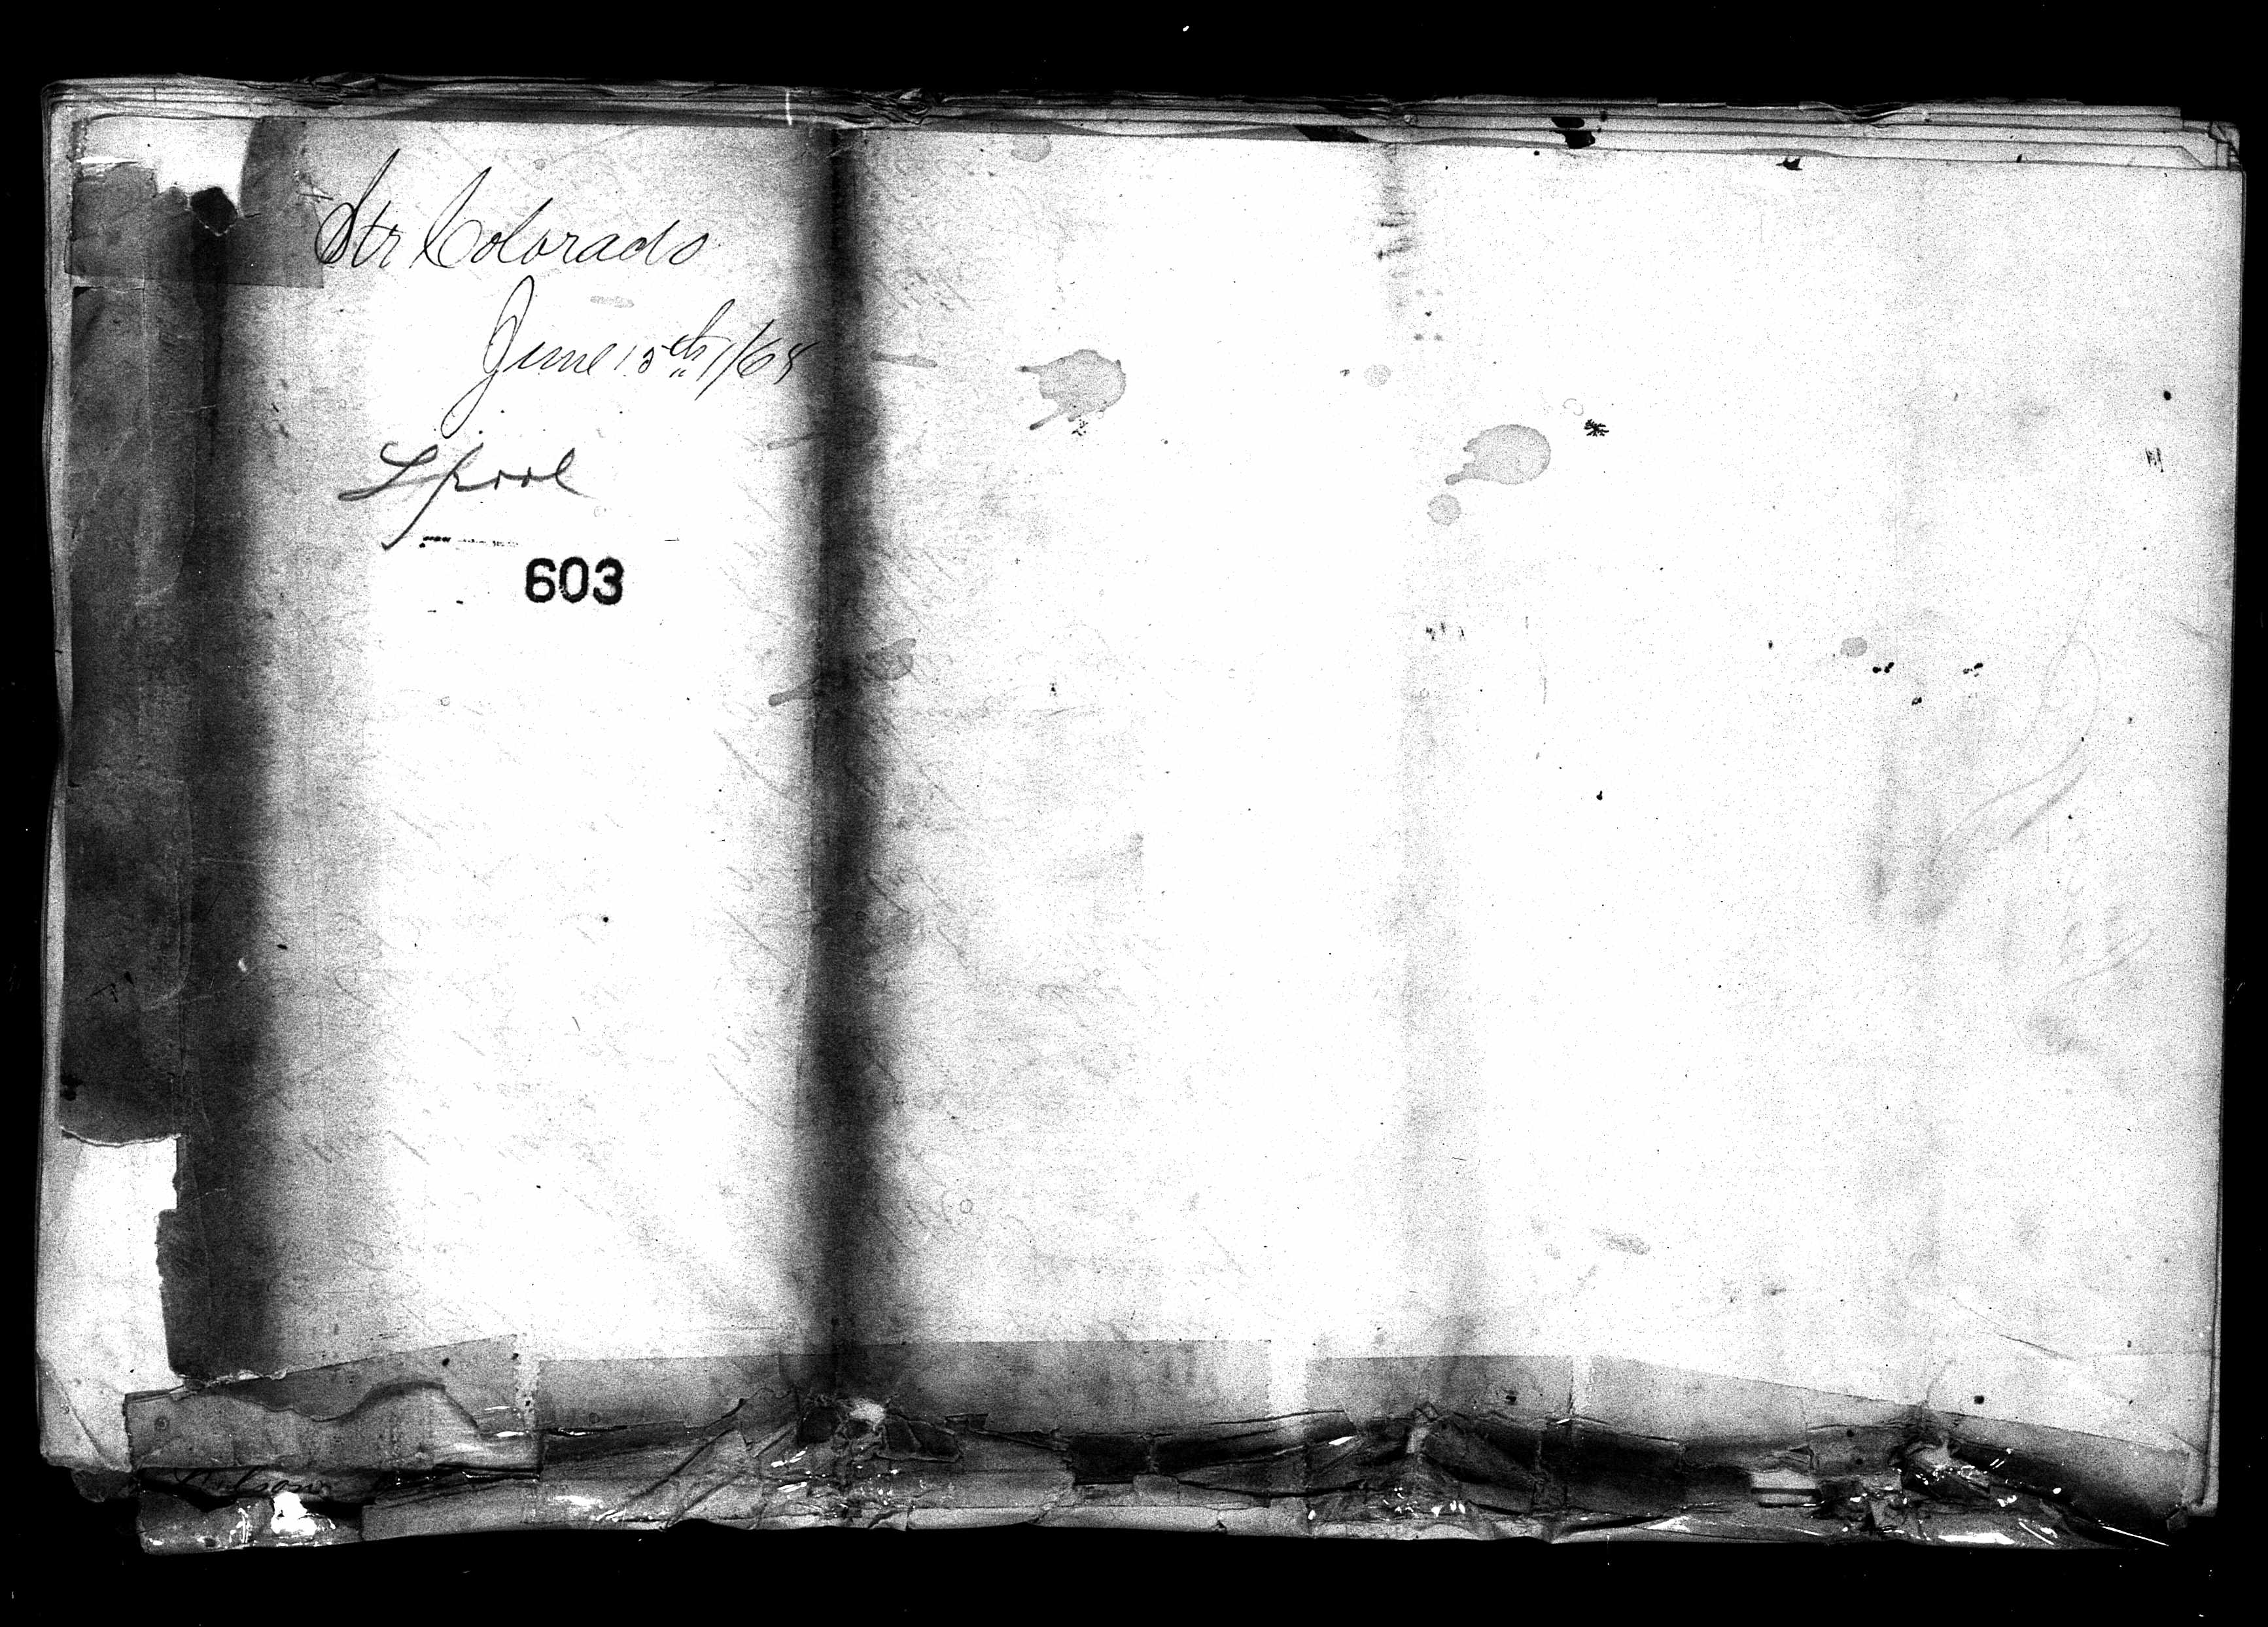 Str Colorado
June 15th 1/68
Lpool
603